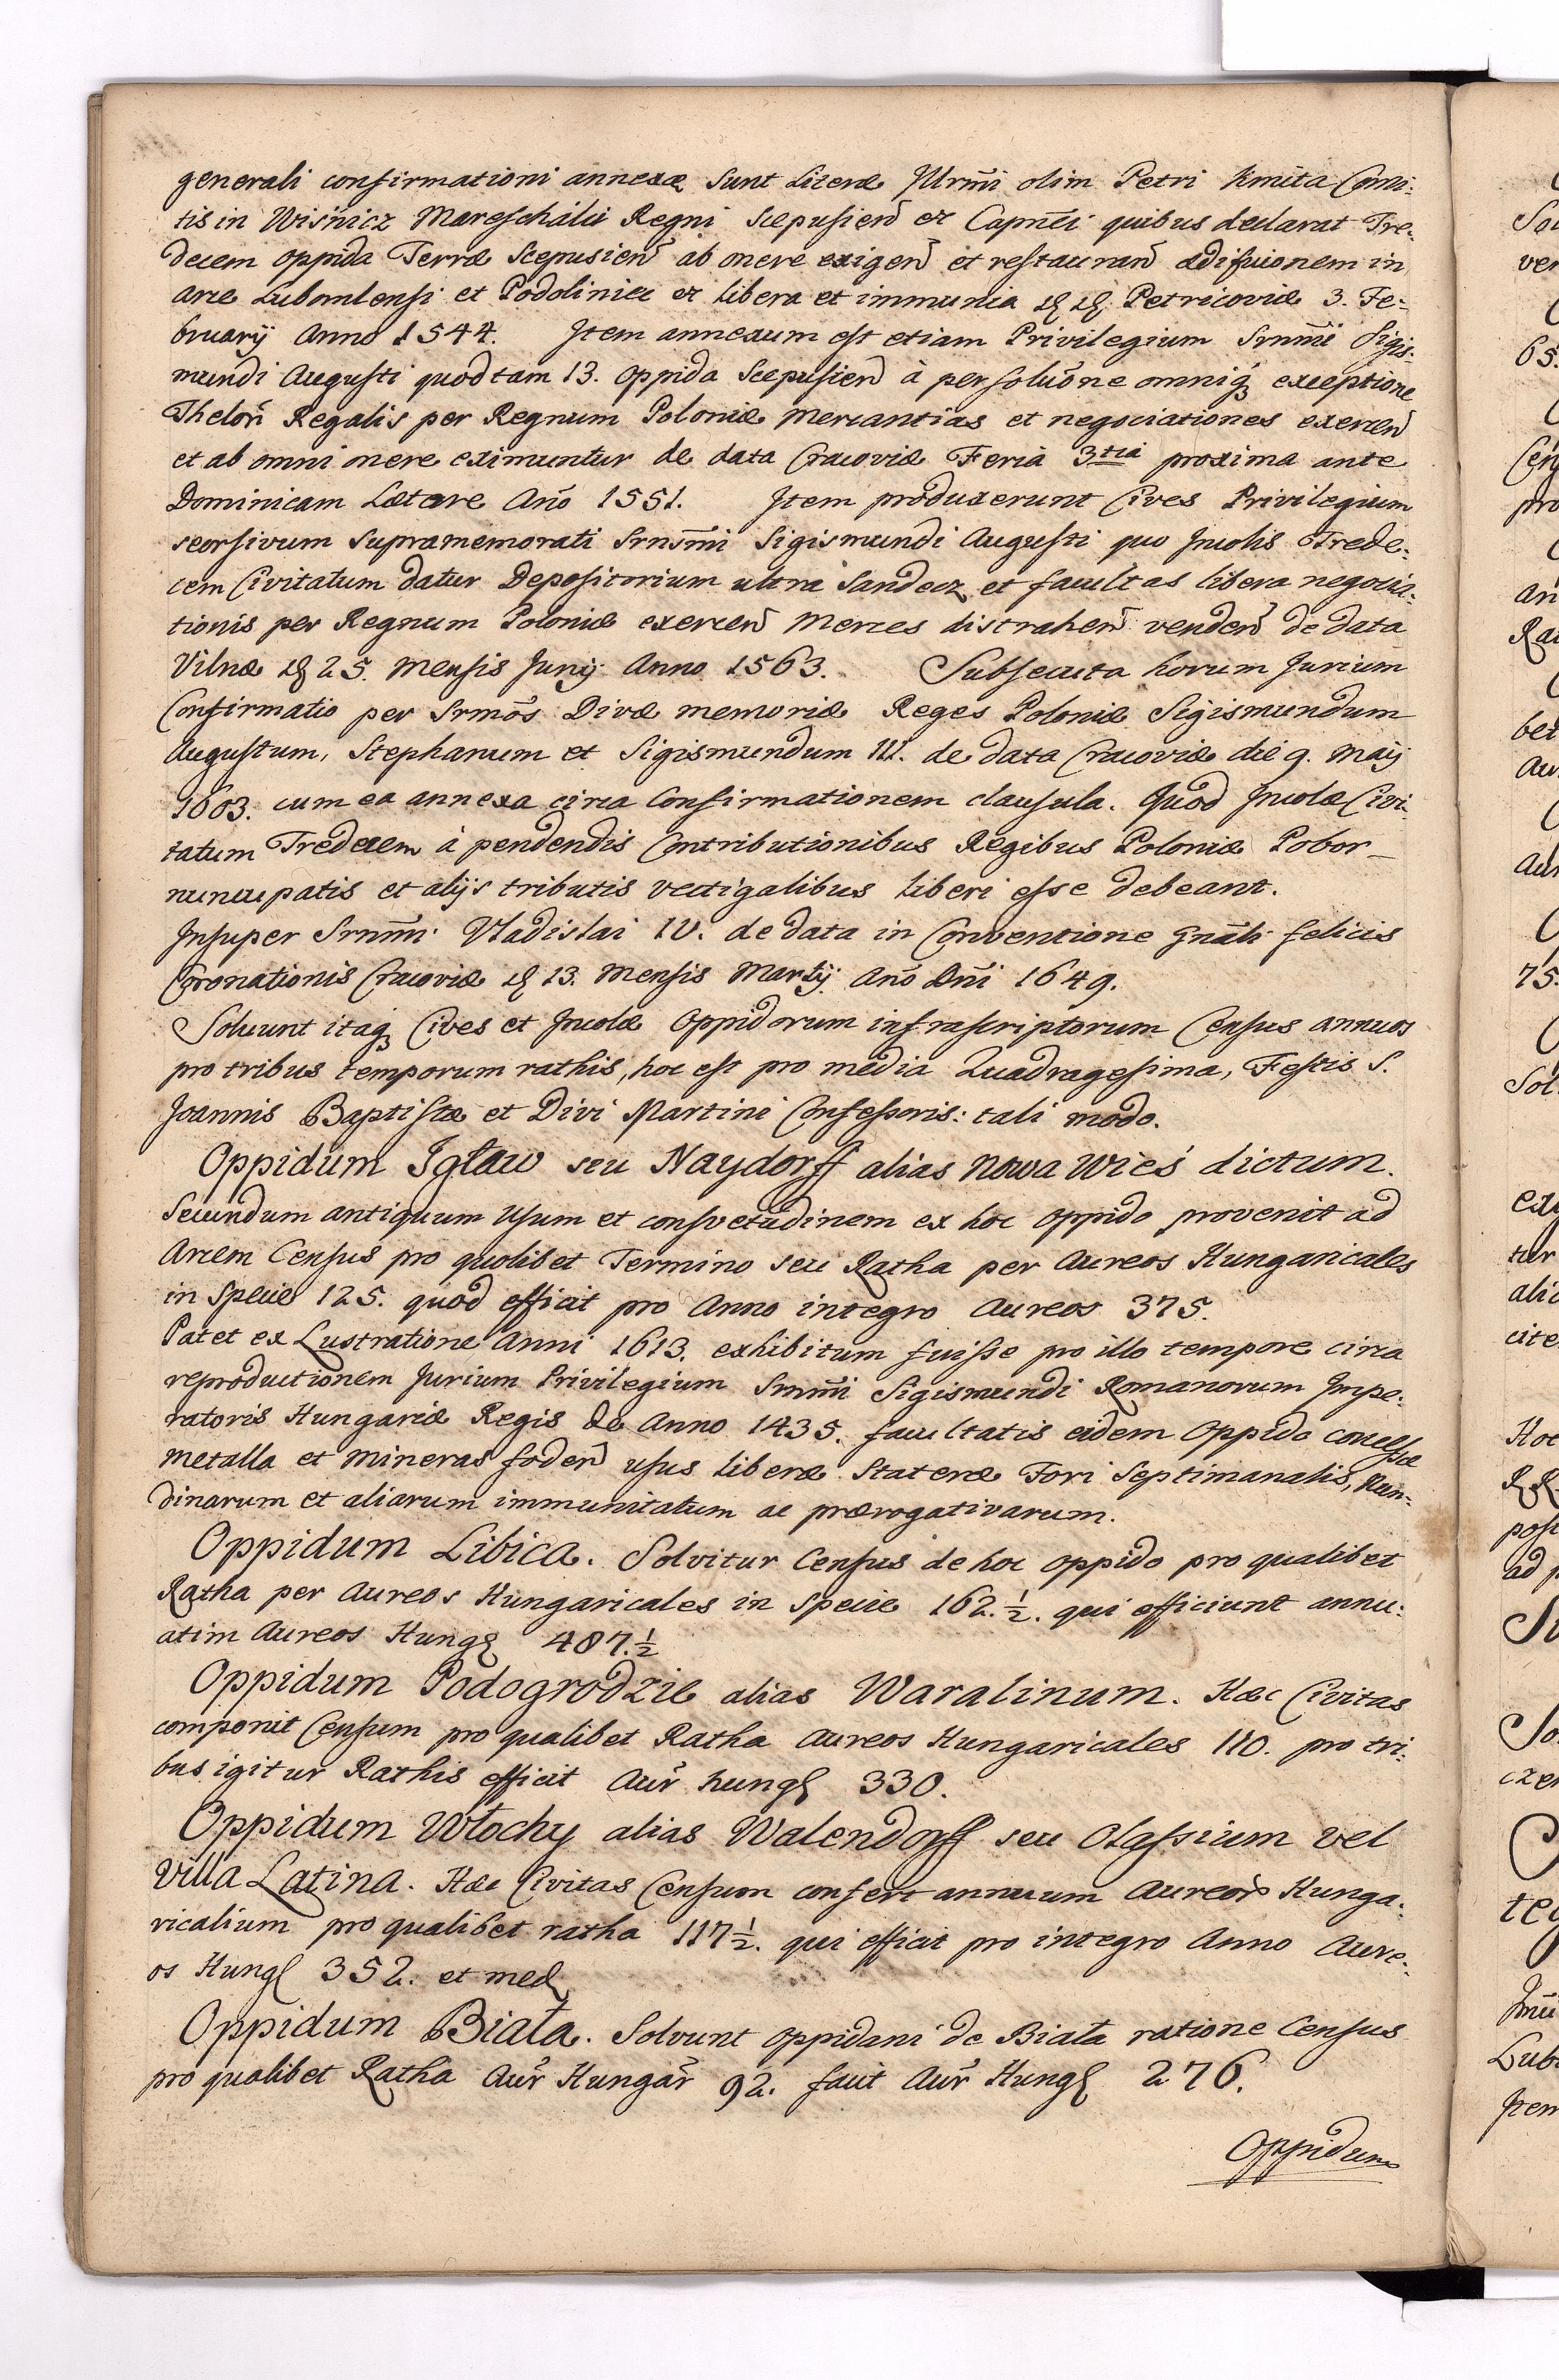 generali confirmationi annexæ sunt Literæ Jllrm̃i olim Petri Kmita Comi:
tis in Wisńicz Mareschalci Regni Scepusień et Capn̄ei quibus declarat Tre:
decem oppida Terræ Scepusień ab onere exigeñ et restaurañ ædificionem in
arce Lubomlensi et Podoliniec et libera et immunia Petricoviæ 3. Fe:
bruarÿ Anno 1544. Jtem annexum est etiam Privilegium Srnm̃i Sigis:
mundi Augusti quod tam 13. oppida Scepusień à persolũone omniq; exceptione
Thelon̄ Regalis per Regnum Poloniæ mercantias et negociationes exerceñ
et ab omni onere eximuntur de data Cracoviæ Feria 3tia proxima ante
Dominicam Lætare Año 1551. Jtem produxerunt Cives Privilegium
seorsivum supramemorati Srnsm̃i Sigismundi Augusti quo Jncolis Trede:
cem Civitatum datur Depositorium ultra Sandecz et facultas libera negocia:
tionis per Regnum Poloniæ exerceñ Merces distraheñ vendeñ de data
Vilnæ 25. Mensis Junÿ Anno 1563. Subsecuta horum Jurium
Confirmatio per Srmõs Divæ memoriæ Reges Poloniæ Sigismundum
Augustum, Stephanum et Sigismundum III. de data Cracoviæ die 9. Maij
1603. cum ea annexa circa Confirmationem clausula. Quod Jncolæ Civi:
tatum Tredecem à pendendis Contributionibus Regibus Poloniæ Pobor_
nuncupatis et alijs tributis vectigalibus liberi esse debeant.
Jnsuper Srnm̃i Vladislai IV. de data in Conventione Gnãli felicis
Coronationis Cracoviæ 13. Mensis Martÿ Año Dñi 1649.
Solvunt itaq; Cives et Jncolæ Oppidorum infrascriptorum Census annuos
pro tribus temporum rathis, hoc est pro media Quadragesima, Festis S.
Joannis Baptistæ et Divi Martini Confessoris: tali modo.
Oppidum Igław seu Naydorff alias Nowa Wieś dictum.
Secundum antiquum Usum et consvetudinem ex hoc oppido provenit ad
Arcem Census pro quolibet Termino seu Ratha per Aureos Hungaricales
in Specie 125. quod efficit pro Anno integro Aureos 375.
Patet ex Lustratione Anni 1613. exhibitum fuisse pro illo tempore circa
reproductionem Jurium Privilegium Srnm̃i Sigismundi Romanorum Jmpe:
ratoris Hungariæ Regis de Anno 1435. facultatis eidem Oppido concessæ
metalla et mineras fodeñ usus liberæ Stateræ Fori Septimanalis, Nun:
dinarum et aliarum immunitatum ac prærogativarum.
Oppidum Libica. Solvitur Census de hoc oppido pro qualibet
Ratha per Aureos Hungaricales in specie 162.½. qui efficiunt annu:
atim Aureos Hung 487.½
Oppidum Podogrodzie alias Waralinum. Hæc Civitas
componit Censum pro qualibet Ratha Aureos Hungaricales 110. pro tri:
bus igitur Rathis efficit Aur̃ hung 330.
Oppidum Włochy alias Walendorff seu Olassium vel
Villa Latina. Hæc Civitas Censum confert annuum Aureor̃ Hunga:
ricalium pro qualibet ratha 117½. qui efficit pro integro Anno Aure:
os Hung 352. et med
Oppidum Biała. Solvunt oppidani de Biała ratione Census
pro qualibet Ratha Aur̃ Hungar̃ 92. facit Aur̃ Hung 276.
Oppidum